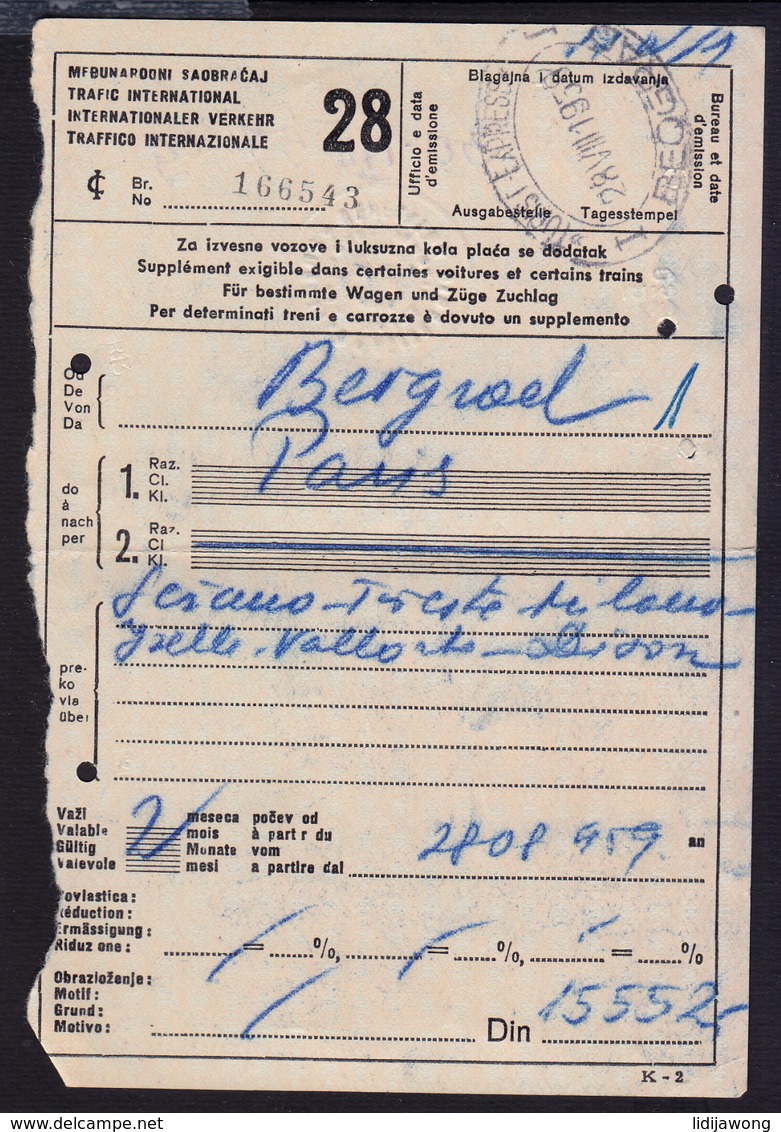 MEĐUNARODNI SAOBRAĆAJ
TRAFIC INTERNATIONAL
INTERNATIONALER VERKEHR
TRAFFICO INTERNAZIONALE
28
Br.
No
166543
Ufficio e data
d'emissione
Blagajna i datum izdavanja
28 VIII 1959
BEOGRAD
Ausgabestelle Tagesstempel
Bureau et date
d'émission
Za izvesne vozove i luksuzna kola plaća se dodatak
Supplément exigible dans certaines voitures et certains trains
Für bestimmte Wagen und Züge Zuchlag
Per determinati treni e carrozze è dovuto un supplemento
Od
De
Von
Da
Beograd 1
do
à
nach
per
1. Raz.
Cl.
Kl.
Paris
2. Raz.
Cl
Kl.
Sežana - Trieste Milano -
Iselle - Vallorbe - Dijon
pre-
ko
via
über
Važi
Valable
Gültig
Valevole
2
meseca počev od
mois à partir du
Monate vom
mesi a partire dal
28 08 959
an
Povlastica:
Réduction:
Ermässigung:
Riduzione:
= %, = %, = %
Obrazloženje:
Motif:
Grund:
Motivo:
Din 15552,
K - 2
lidijawong